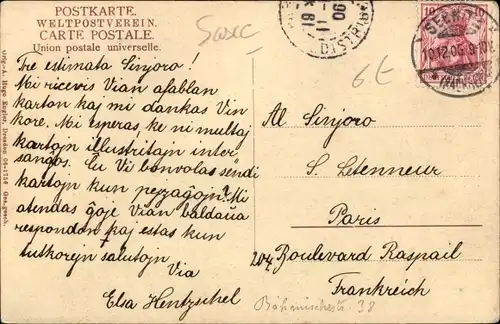 POSTKARTE.
WELTPOSTVEREIN.
CARTE POSTALE.
Union postale universelle.
Saxe
6 t
10.12.05. 9-10V.
DISTRIB
Tre estimata Sinjoro!
Mi ricevis Vian afablan
karton kaj mi dankas Vin
kore. Mi esperas, ke ni multaj
kartojn illustritajn inter
sanĝos. Ĉu Vi bonvolas sendi
kartojn kun pejzaĝojn? Mi
atendas ĝoje Vian baldaŭa
respondon kaj estas kun
tutkorejn salutojn
Via
Elsa Hentzschel
Al Sinjoro
S. Letenneur
Paris
204 Boulevard Raspail
Frankreich
Böhmischestr. 38
Orig.-A. Hugo Engler, Dresden 04-1756 Ges. gesch.